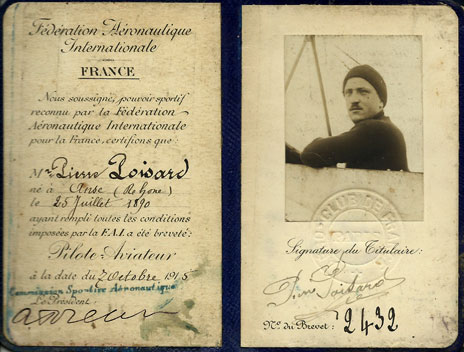 Fédération Aéronautique
Internationale
FRANCE
Nous soussigné, pouvoir sportif
reconnu par la Fédération
Aéronautique Internationale
pour la France, certifions que:
Mr Pierre Poisard
né à Anse (Rhone)
le 25 Juillet 1890
ayant rempli toutes les conditions
imposées par la F.A.I. a été breveté:
Pilote-Aviateur
à la date du 7 Octobre 1915
Commission Sportive Aéronautique
Le Président:
Signature du Titulaire:
Pierre Poisard
No. du Brevet: 2432